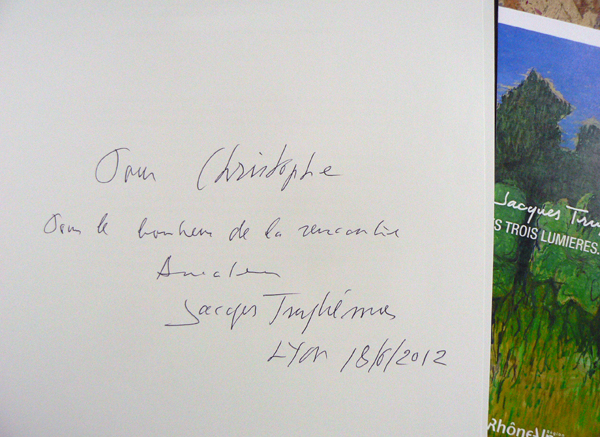 Pour Christophe
Pour le bonheur de la rencontre
Jacques Truphémus
LYON 18/6/2012
Jacques Tru
S TROIS LUMIERES.
Rhône